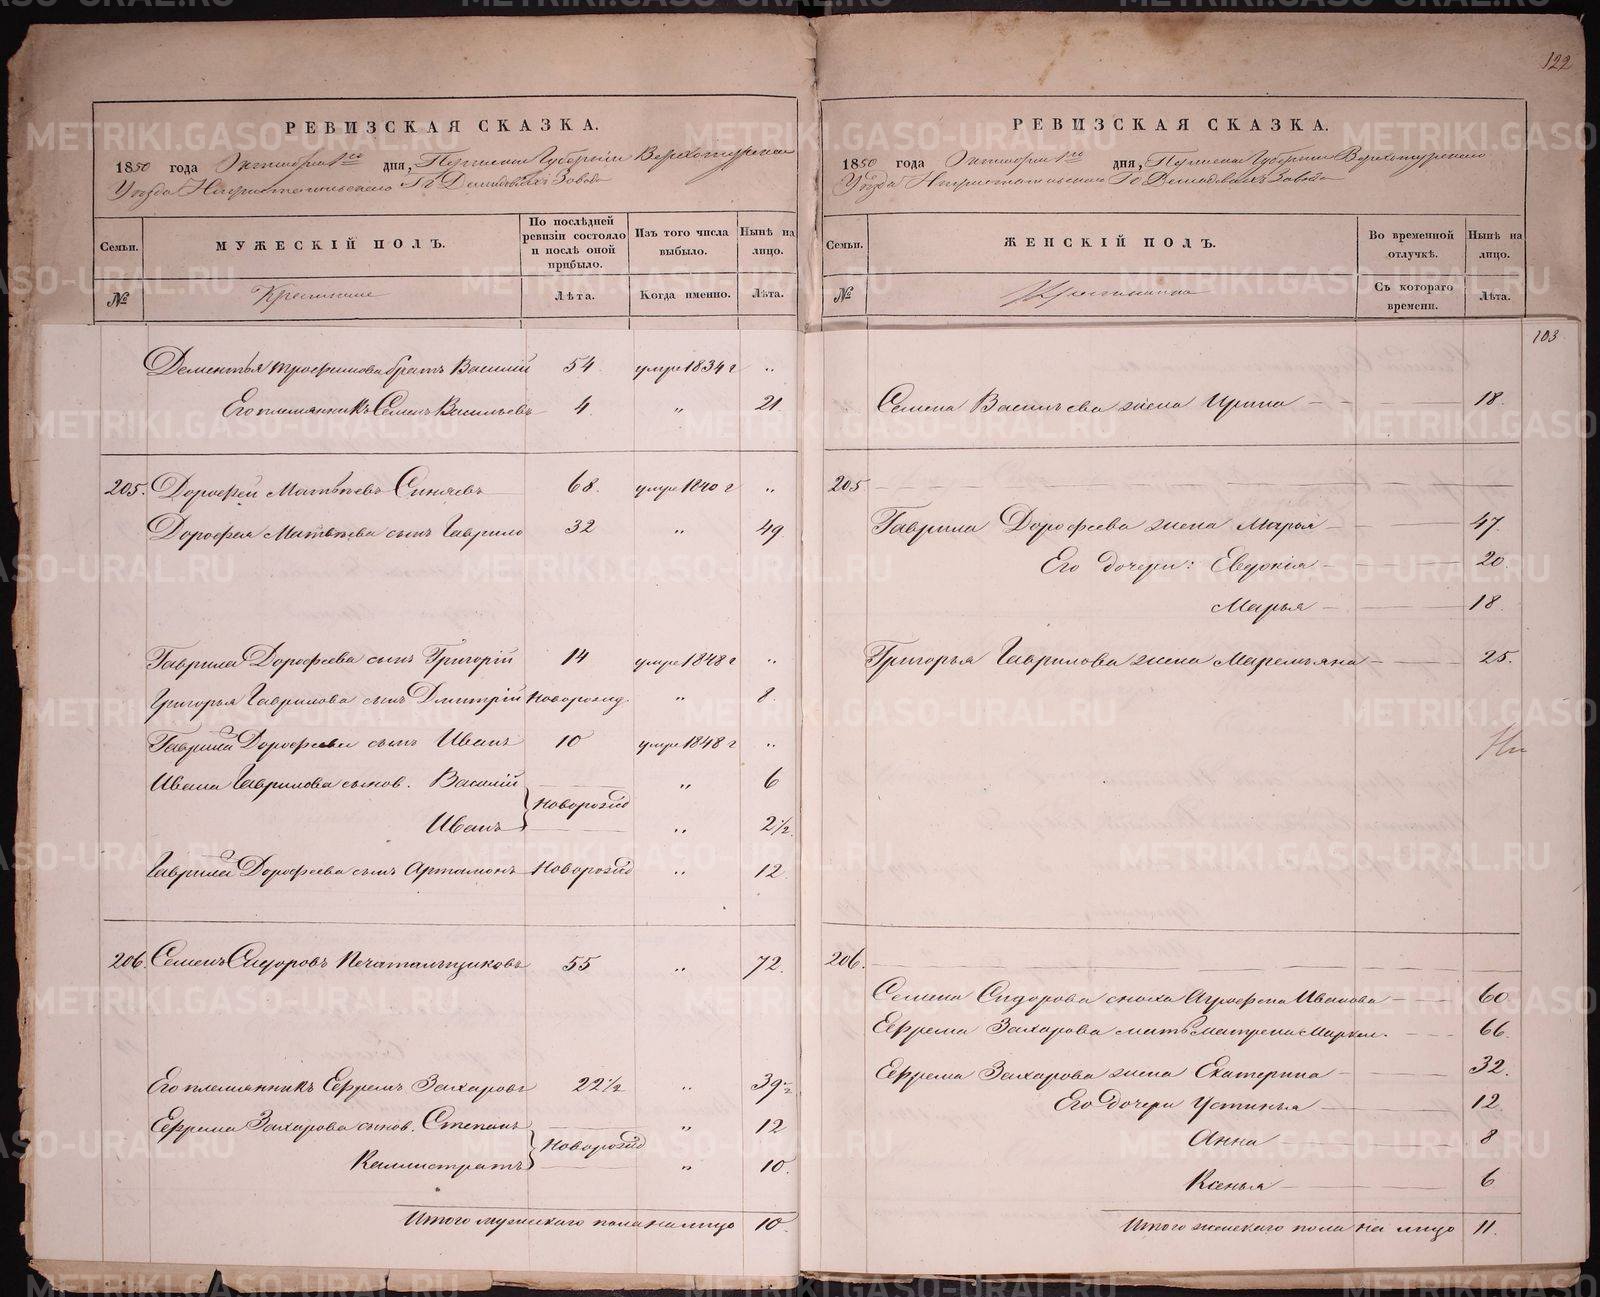 122
РЕВИЗСКАЯ СКАЗКА.
1850 года Октября 1го дня, Пермской Губерніи Верхотурскаго
Уѣзда Гг Демидовыхъ Завода
Семьи. МУЖЕСКІЙ ПОЛЪ. По послѣдней ревизіи состояло и послѣ оной прибыло. Изъ того числа выбыло. Нынѣ на лицо.
№ Крестьяне Лѣта. Когда именно. Лѣта.
Дементья Трофимова братъ Василій 54 умре 1834 г „
Его племянникъ Семенъ Васильевъ 4. „ 21
205. Дорофей Матвѣевъ Синяевъ 68. умре 1840 г „
Дорофея Матвѣева сынъ Гаврило 32 „ 49
Гаврила Дорофеева сынъ Григорій 14 умре 1848 г „
Григорья Гаврилова сынъ Дмитрій Новорожд. „ 8.
Гаврила Дорофеева сынъ Иванъ 10 умре 1848 г „
Ивана Гаврилова сынов. Василій „ 6
Новорожд
Иванъ „ 2½.
Гаврила Дорофеева сынъ Артамонъ Новорожд „ 12.
206. Семенъ Сидоровъ Печатальщиковъ 55 „ 72.
Его племянникъ Ефремъ Захаровъ 22½ „ 39½
Ефрема Захарова сынов. Степанъ „ 12
Новорожд
Каллистратъ „ 10.
Итого мужескаго пола на лицо 10.
РЕВИЗСКАЯ СКАЗКА.
1850 года Октября 1го дня, Пермской Губерніи Верхотурскаго
Уѣзда Гг Демидовыхъ Завода
Семьи. ЖЕНСКІЙ ПОЛЪ. Во временной отлучкѣ. Нынѣ на лицо.
№ Крестьянки Съ котораго времени. Лѣта.
103
Семена Васильева жена Ирина 18.
205
Гаврила Дорофеева жена Марья 47.
Его дочери: Евдокія 20.
Марья 18.
Григорья Гаврилова жена Маремьяна 25.
206.
Семена Сидорова сноха Агрофена Иванова 60
Ефрема Захарова мать Матрена Маркел. 66.
Ефрема Захарова жена Екатерина 32.
Его дочери Устинья 12
Анна 8
Ксенья 6
Итого женскаго пола на лицо 11.
METRIKI.GASO-URAL.RU